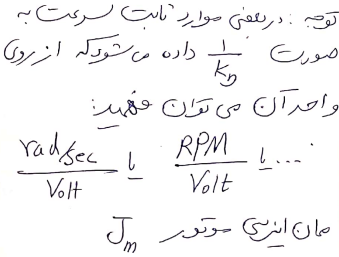 توجه : در بعضی موارد ثابت سرعت به
صورت 1/K_b داده می‌شود که از روی
واحد آن می‌توان فهمید:
rad/sec / Volt یا RPM / Volt یا ...
ممان اینرسی موتور J_m